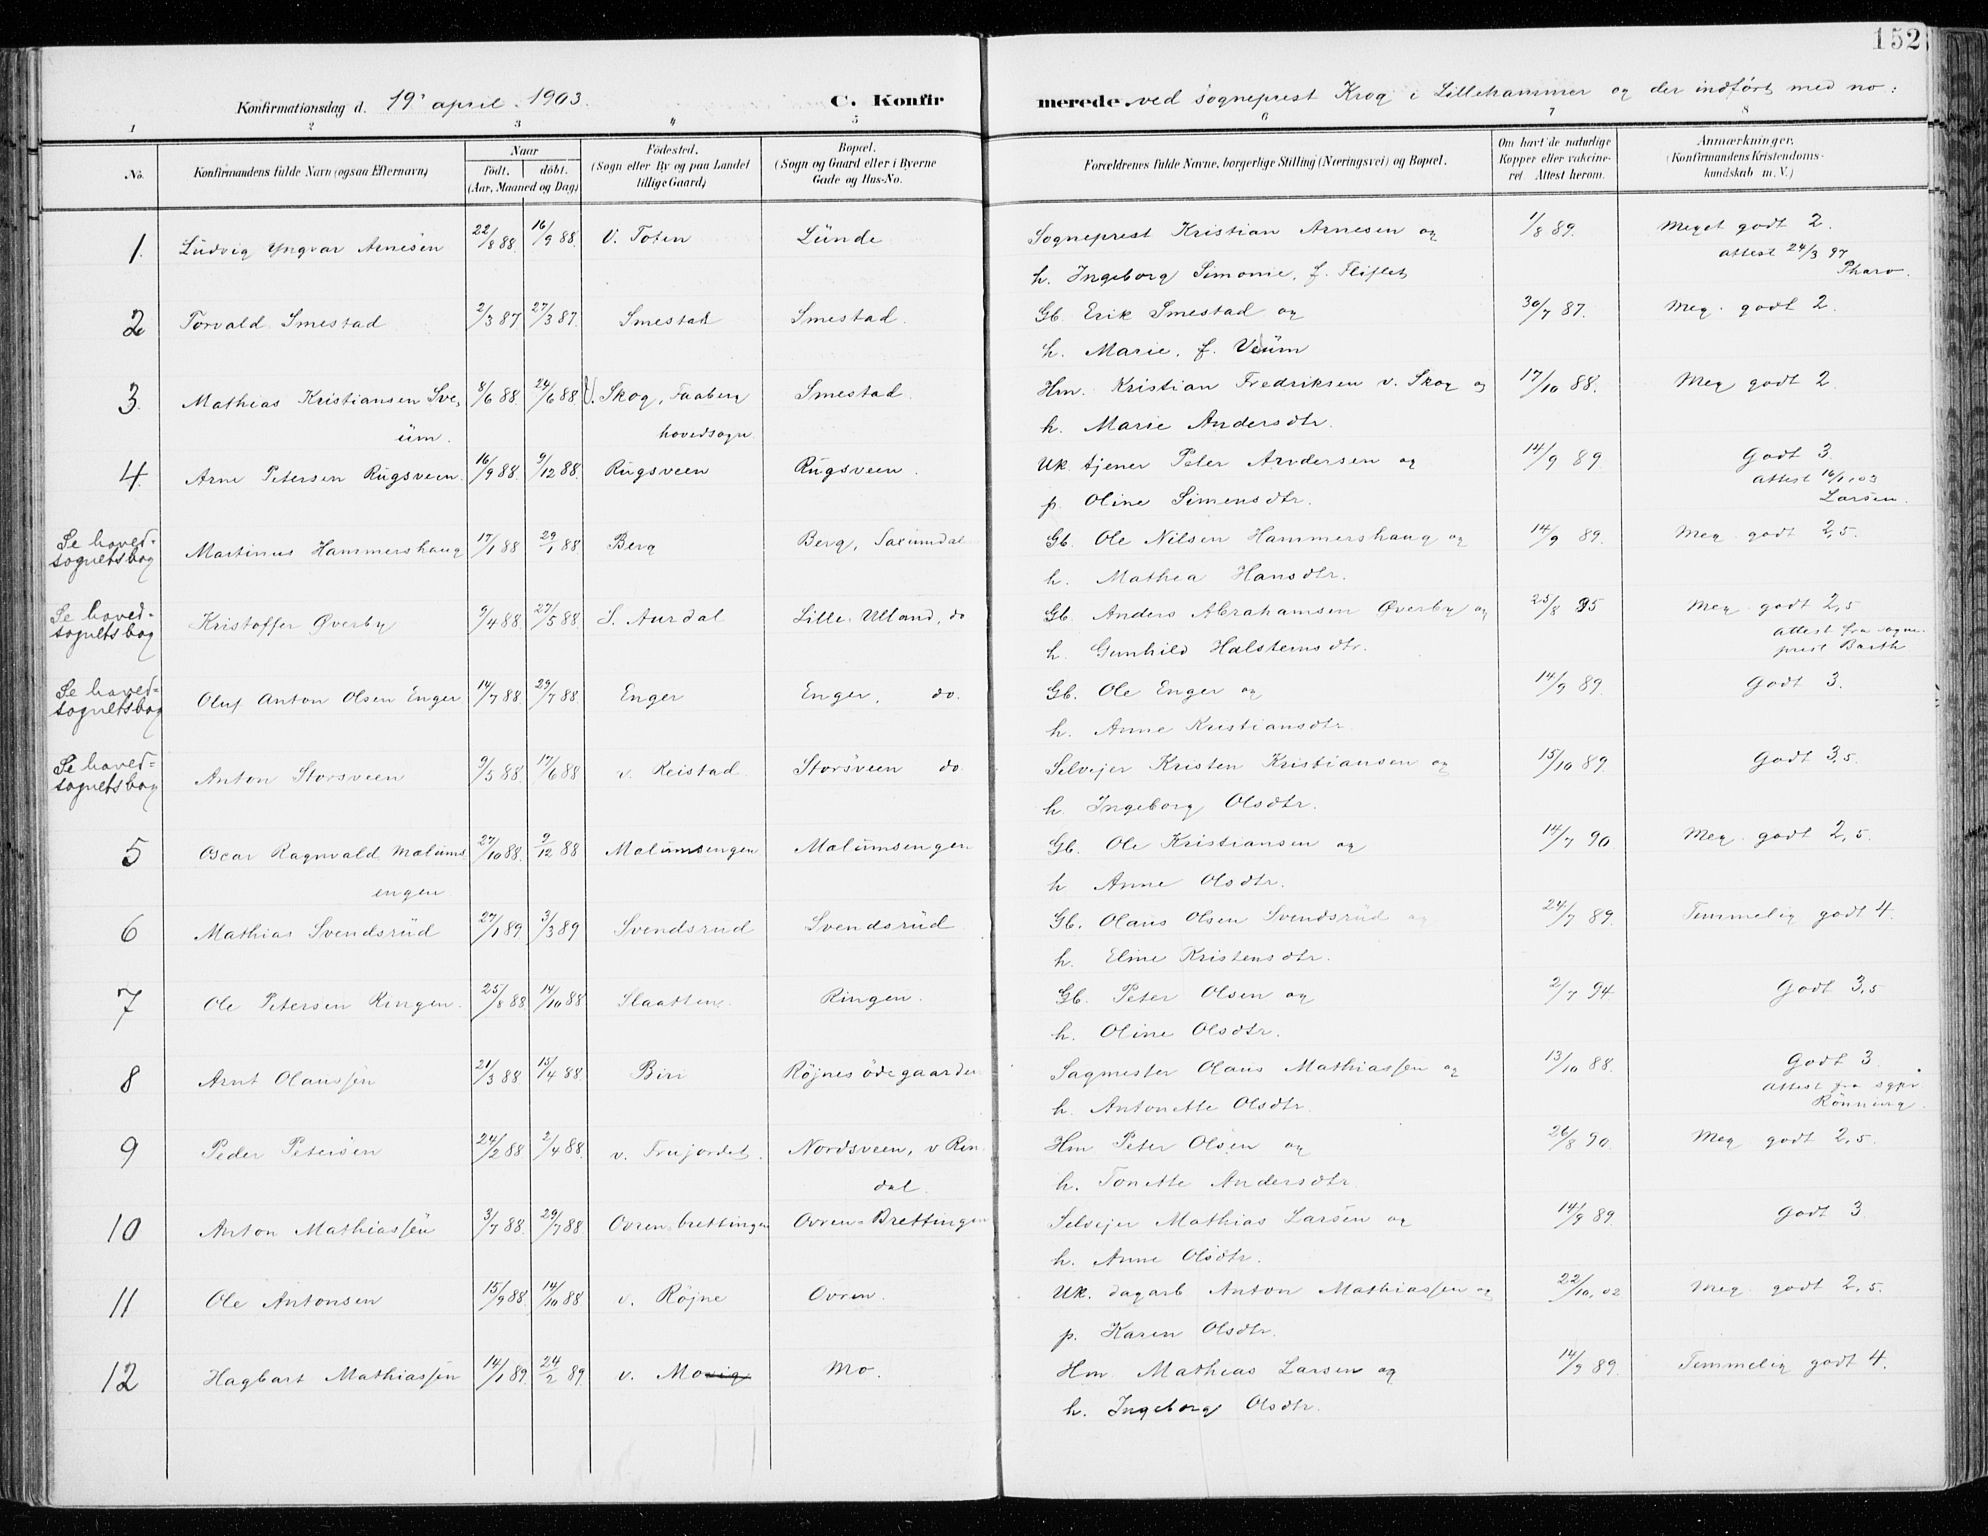 152
Konfirmationsdag d. 19' april 1903. C. Konfir merede ved sogneprest Krog i Lillehammer og der indført med no:
1 2 3 4 5 6 7 8
No. Konfirmandens fulde Navn (ogsaa Efternavn) Naar Født. døbt. (Aar, Maaned og Dag) Fødested. (Sogn eller By og paa Landet tillige Gaard) Bopæl. (Sogn og Gaard eller i Byerne Gade og Hus-No. Forældrenes fulde Navne, borgerlige Stilling (Næringsvei) og Bopæl. Om havt de naturlige Kopper eller vakcineret Attest herom. Anmærkninger. (Konfirmandens Kristendomskundskab m. V.)
1. Ludvig Yngvar Arnesen 22/8 88 16/9 88. V. Toten Lunde Sogneprest Kristian Arnesen og 1/8 89. Meget godt 2.
h. Ingeborg Simonie, f. Fliflet attest 24/3 97 Pharo.
2 Torvald Smestad 2/3 87 27/3 87. Smestad Smestad. Gb. Erik Smestad og 30/7 87. Meg. godt 2.
h. Marie, f. Veum
3. Mathias Kristiansen Sve- 8/6 88. 24/6 88. V. Skog, Faaberg Smestad. Hm. Kristian Fredriksen v. Skog og 17/10 88. Meg godt 2.
um. hovedsogn h. Marie Andersdtr.
4. Arne Petersen Rugsveen. 16/9 88. 9/12 88. Rugsveen Rugsveen. Uk. tjener Peter Andersen og 14/9 89. Godt 3.
p. Oline Simensdtr. attest 16/1 03 Larsen.
Se hoved-sognetsbog Martinus Hammershaug 17/1 88 29/1 88 Berg Berg, Saxumdal Gb. Ole Nilsen Hammershaug og 14/9 89. Meg. godt 2,5.
h. Mathea Hansdtr.
Se hoved-sognetsbog Kristoffer Øverby 9/4 88. 27/5 88. S. Aurdal Lille Ulland, do Gb. Anders Abrahamsen Øverby og 25/8 95 Meg. godt 2,5
h. Gunhild Halstensdtr. attest fra sogneprest Barth
Se hoved-sognetsbog Oluf Anton Olsen Enger 14/7 88. 29/7 88 Enger Enger, do. Gb. Ole Enger og 14/9 89. Godt 3.
h. Anne Kristiansdtr.
Se hoved-sognetsbog Anton Storsveen 9/5 88. 17/6 88 v. Reistad. Storsveen do. Selvejer Kristen Kristiansen og 15/10 89. Godt 3,5.
h. Ingeborg Olsdtr.
5 Oscar Ragnvald Malums 27/10 88. 9/12 88 Malumsengen Malumsengen Gb. Ole Kristiansen og 14/7 90. Meg. godt 2,5.
engen. h Anne Olsdtr.
6 Mathias Svendsrud 27/1 89 3/3 89 Svendsrud Svendsrud Gb. Olaus Olsen Svendsrud og 24/7 89. Temmelig godt 4.
h. Eline Kristensdtr.
7 Ole Petersen Ringen. 25/8 88 14/10 88. Slaatten. Ringen. Gb. Peter Olsen og 2/7 94 Godt 3,5
h. Oline Olsdtr.
8 Arnt Olaussen 21/3 88 15/4 88. Biri Røjnesødegaarden Sagmester Olaus Mathiassen og 13/10 88. Godt 3.
h. Antonette Olsdtr. attest fra sgpr. Rønning.
9 Peder Petersen 24/2 88 2/4 88. v. Frujordet. Nordsveen, v Rin- Hm Peter Olsen og 26/8 90. Meg godt 2,5.
dal. h. Tonette Andersdtr.
10 Anton Mathiassen 3/7 88. 29/7 88 Ovren-brettingen Ovren-Brettingen Selvejer Mathias Larsen og 14/9 89. Godt 3.
h. Anne Olsdtr.
11 Ole Antonsen 15/9 88. 14/10 88 v. Røjne Ovren. Uk. dagarb Anton Mathiassen og 22/10, 02 Meg. godt 2,5.
p. Karen Olsdtr.
12 Hagbart Mathiassen 14/1 89. 24/2 89. v. Movig Mo. Hm. Mathias Larsen og 14/9 89. Temmelig godt 4.
h. Ingeborg Olsdtr.